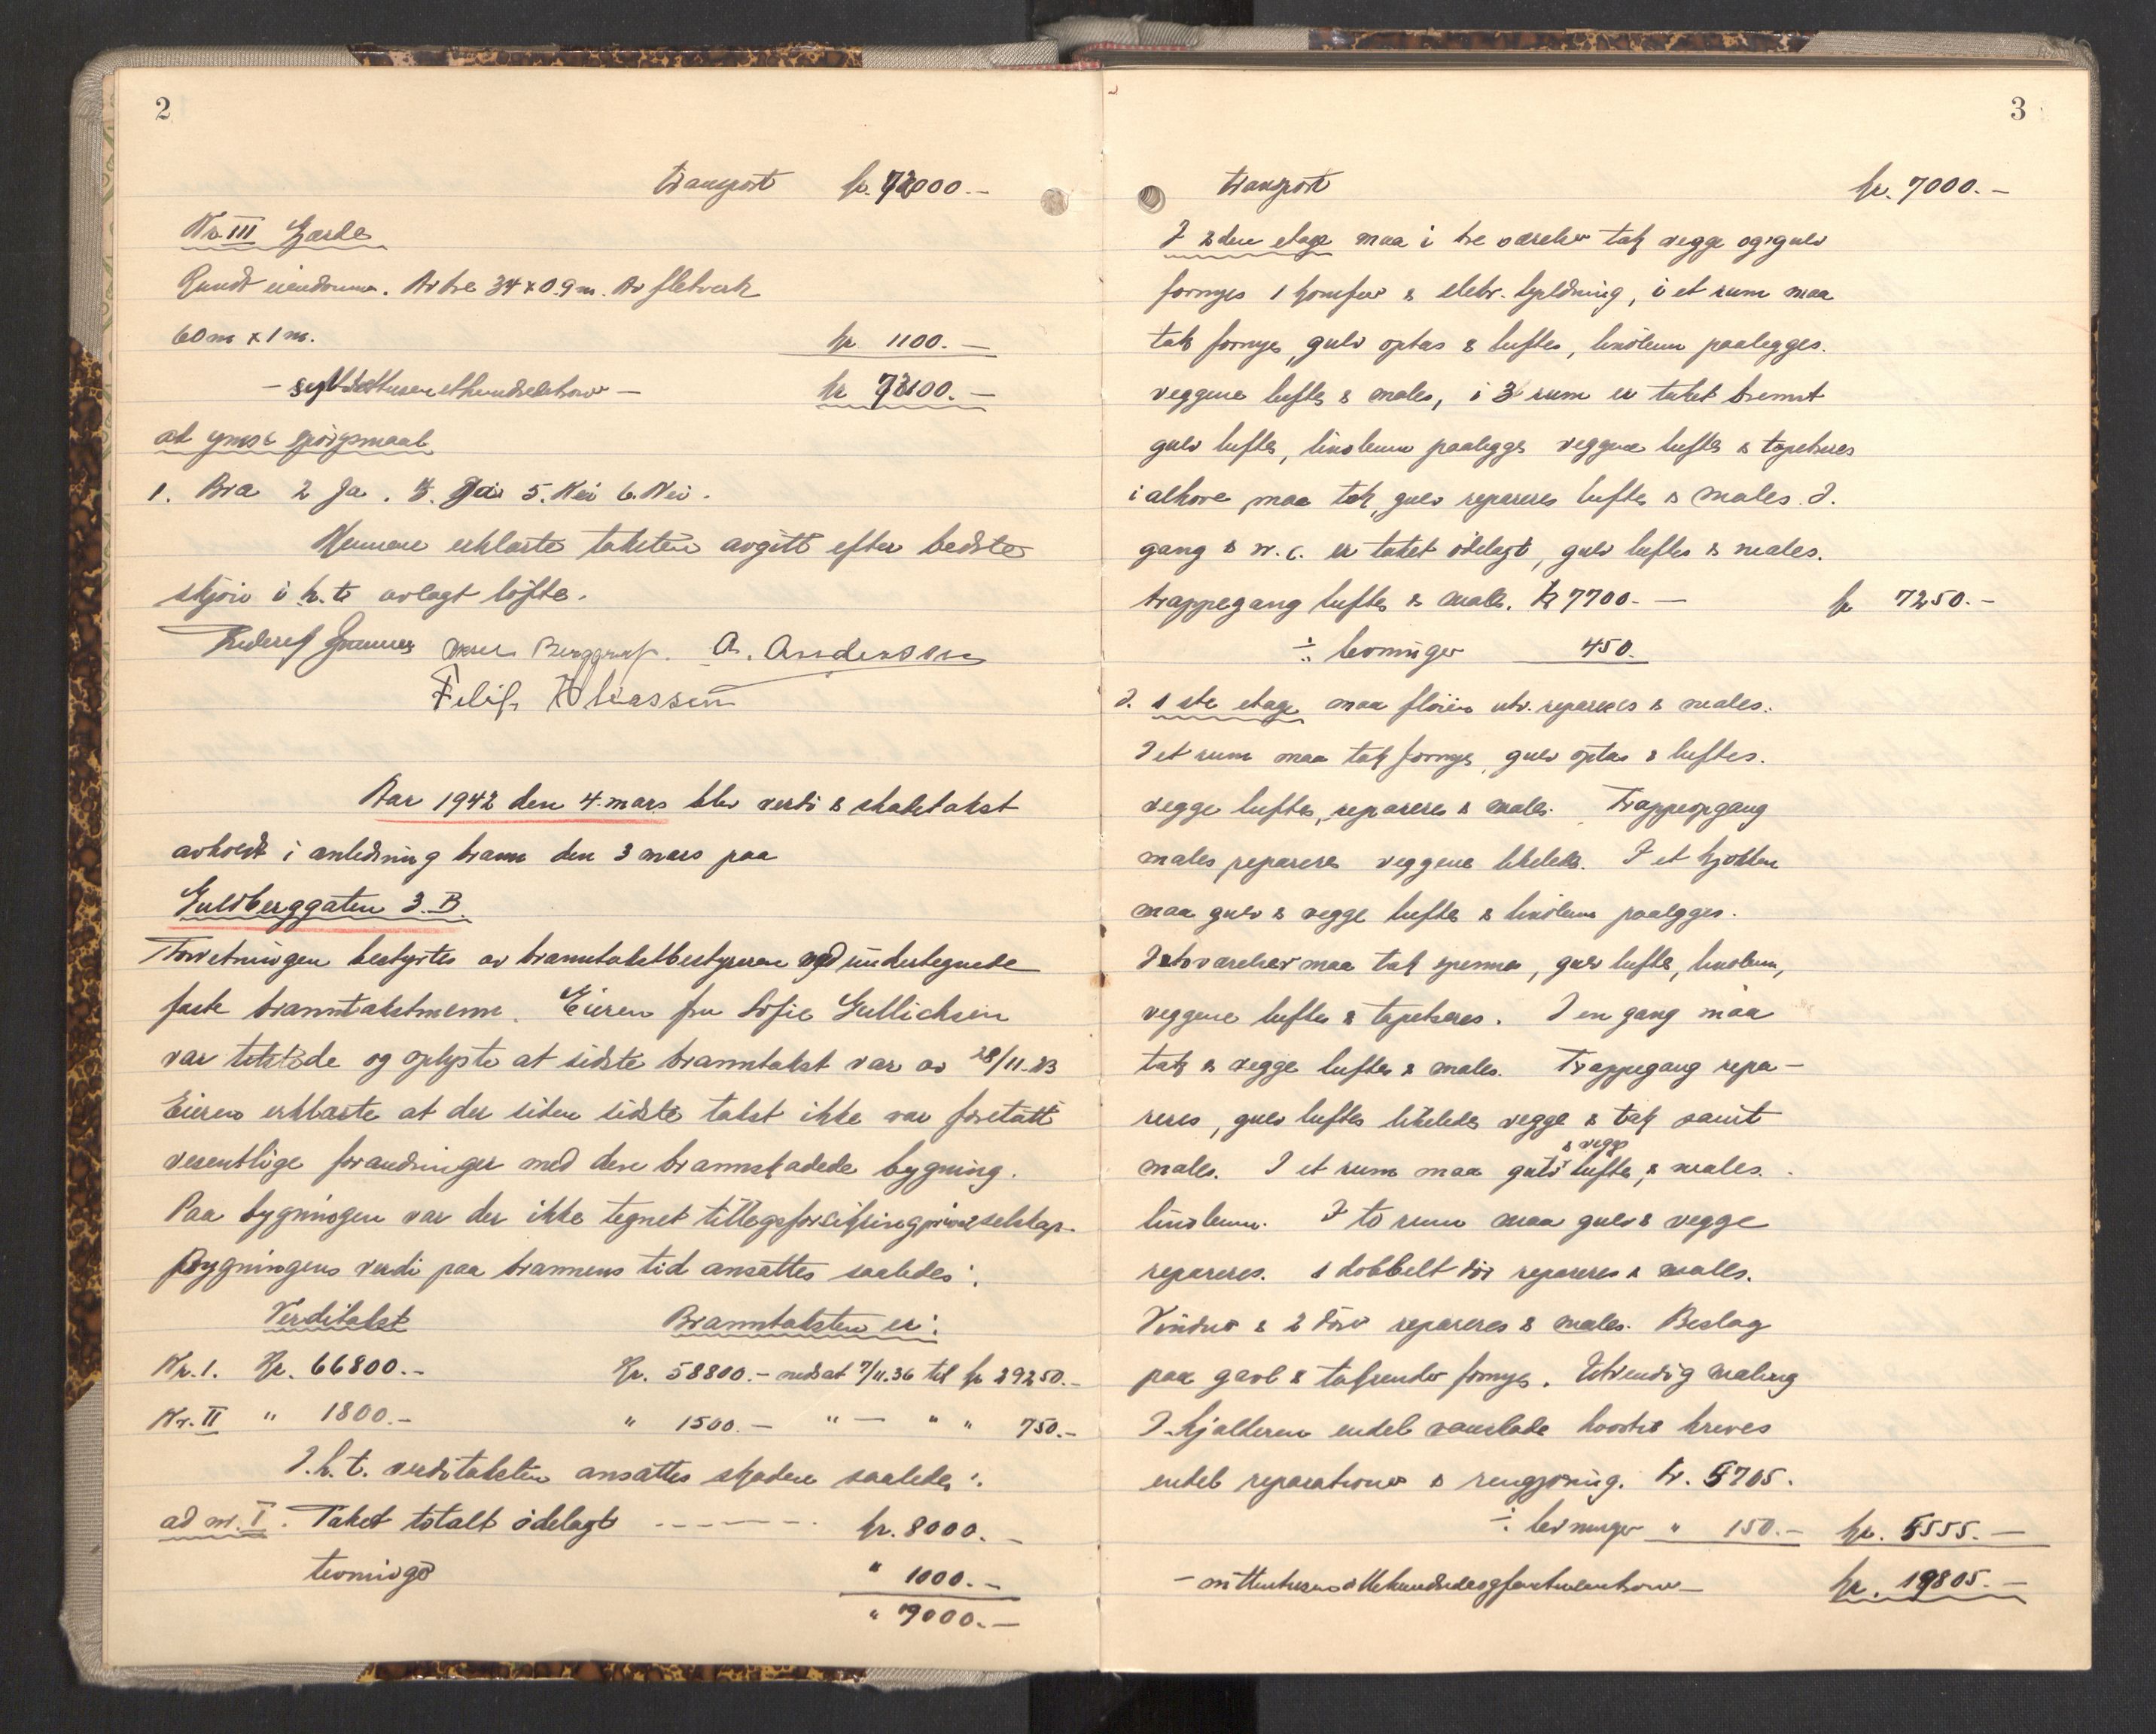 2
transport kr. 72000.-
Nr. III Gjærde
Rundt eiendommen. Av tre 34 x 0.9 m. Av fletverk
60 m x 1 m. kr 1100.-
kr 73100.-
ad ymse spörsmaal
1. Bra 2 Ja. 3. Ja 5. Nei 6. Nei.
Mennene erklærte taksten avgitt efter bedste
skjön i h. t. avlagt löfte.
A. Anderson
Filip
Aar 1942 den 4. mars blev verdi & skadetakst
avholdt i anledning brann den 3 mars paa
Guldberggaten 3. B.
Forretningen bestyrtes av branntakstbestyreren med undertegnede
faste branntakstmenn. Eieren fru Sofie Gullichsen
var tilstede og oplyste at sidste branntakst var av 28/11-23
Eieren erklærte at der siden sidste takst ikke var foretatt
vesentlige forandringer med den brannskadede bygning.
Paa bygningen var der ikke tegnet tillegsforsikring i privat selskap.
Bygningens verdi paa brannens tid ansattes saaledes:
Verditakst Branntaksten er:
Nr. 1. Kr. 66800.- Kr. 58800.- nedsat 7/11.36 til kr 29250.-
Nr. II " 1800.- " 1500.- " — " " 750.-
I. h. t. verditaksten ansattes skaden saaledes:
ad nr. I. Taket totalt ödelagt kr. 8000.-
levninger " 1000.-
" 7000.-
3
transport kr. 7000.-
I 2den etage maa i tre værelser tak vegge og gulv
fornyes 1 komfur & elektr. ledning, i et rum maa
tak fornyes, gulv optas & luftes, linoleum paalegges.
veggene luftes & males, i 3 rum er taket brennt
gulv luftes, linoleum paalegges veggene luftes & tapetseres
i alkove maa tak, gulv repareres luftes & males. I.
gang & w.c. er taket ödelagt, gulv luftes & males.
trappegang luftes & males. kr 7700.- kr 7250.-
÷ levninger 450.
I. 1ste etage maa flöien utv. repareres & males.
I et rum maa tak fornyes, gulv optas & luftes.
vegge luftes, repareres & males. Trappeopgang
males repareres veggene likeledes. I et kjökken
maa gulv & vegge luftes & linoleum paalegges.
I to værelser maa tak, gulv luftes, linoleum,
veggene luftes & tapetseres. I en gang maa
tak & vegge luftes & males. Trappegang repa-
reres, gulv luftes likeledes vegge & tak samt
males. I et rum maa gulv & vegge luftes, & males.
linoleum. I to rum maa gulv & vegge
repareres. 1 dobbelt dör repareres & males.
Vinduer & 2 dörer repareres & males. Beslag
paa gavl & takrender fornyes. Utvendig maling
I kjelderen endel vannskade hvortil kreves
endel reparationer & rengjöring. kr. 5705.
÷ levninger " 150.- kr. 5555.-
-nittentusenottehundredeogfemkroner- kr. 19805.-